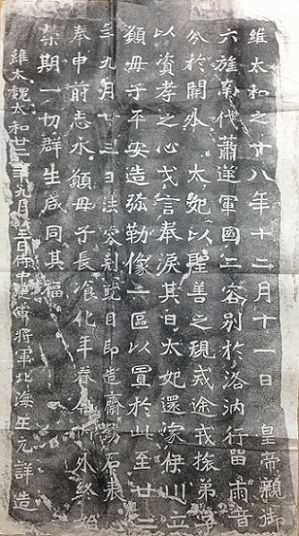 維太和之十八年十二月十一日 皇帝親御
六旌南伐蕭逆軍國二容別於洛汭行留兩音
分於關外 太妃以聖善之規戒途戎旅弟子
以資孝之心戈言奉淚其日太妃還家伊川立
願母子平安造弥勒像一區以置於此至廿二
年九月廿三日法容剋就因即造齋鐫石表
奉申前志永願母子長瓊化年眷 內外終始
榮期一切群生咸同其福
維大魏太和廿二年九月廿三日侍中護軍將軍北海王元詳造